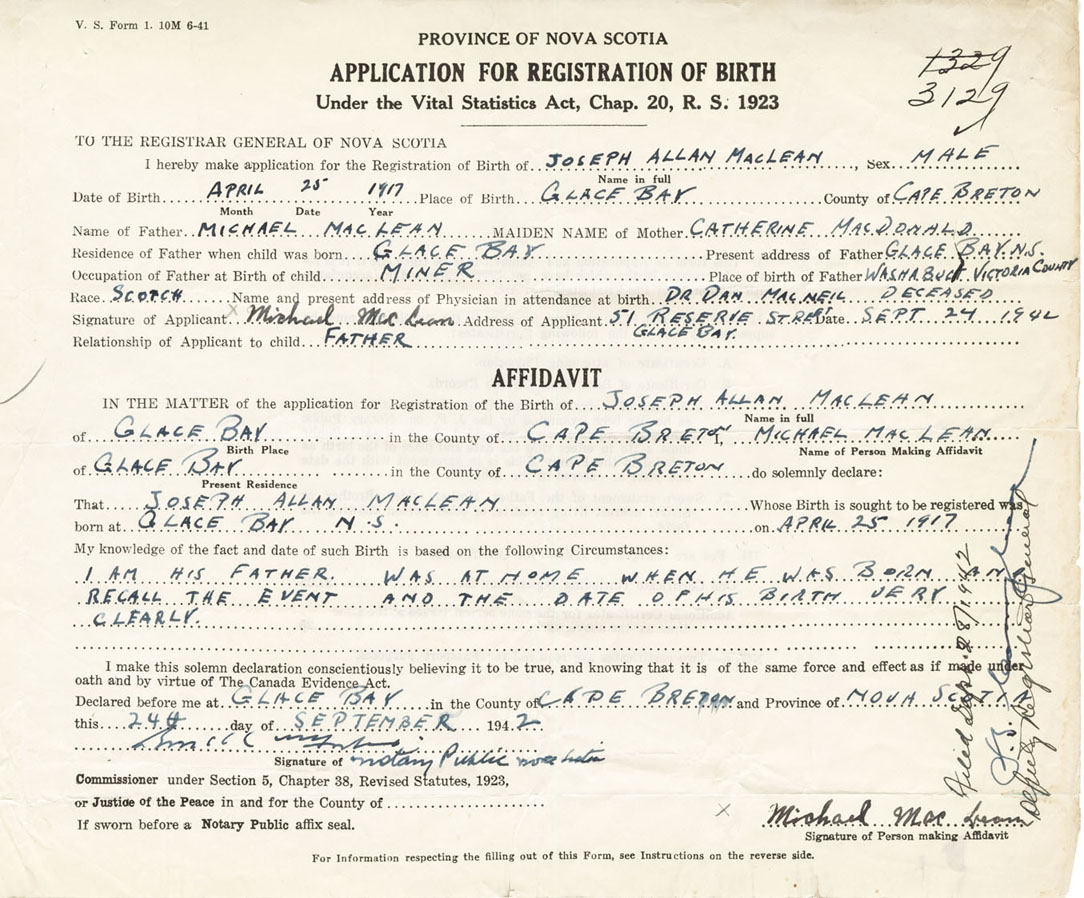 V. S. Form 1. 10M 6-41
PROVINCE OF NOVA SCOTIA
APPLICATION FOR REGISTRATION OF BIRTH
Under the Vital Statistics Act, Chap. 20, R. S. 1923
1329
3129
TO THE REGISTRAR GENERAL OF NOVA SCOTIA
I hereby make application for the Registration of Birth of JOSEPH ALLAN MACLEAN, Sex MALE
Name in full
Date of Birth APRIL 25 1917 Place of Birth GLACE BAY County of CAPE BRETON
Month Date Year
Name of Father MICHAEL MACLEAN MAIDEN NAME of Mother CATHERINE MACDONALD
Residence of Father when child was born GLACE BAY Present address of Father GLACE BAY. N.S.
Occupation of Father at Birth of child MINER Place of birth of Father WASHABUCK VICTORIA COUNTY
Race SCOTCH Name and present address of Physician in attendance at birth DR DAN MACNEIL DECEASED
Signature of Applicant x Michael Mac Lean Address of Applicant 51 RESERVE STREET Date SEPT 24 1942
GLACE BAY.
Relationship of Applicant to child FATHER
AFFIDAVIT
IN THE MATTER of the application for Registration of the Birth of JOSEPH ALLAN MACLEAN
Name in full
of GLACE BAY in the County of CAPE BRETON, I, MICHAEL MACLEAN
Birth Place Name of Person Making Affidavit
of GLACE BAY in the County of CAPE BRETON do solemnly declare:
Present Residence
That JOSEPH ALLAN MACLEAN Whose Birth is sought to be registered was
born at GLACE BAY N.S. on APRIL 25 1917
My knowledge of the fact and date of such Birth is based on the following Circumstances:
I AM HIS FATHER. WAS AT HOME WHEN HE WAS BORN AND
RECALL THE EVENT AND THE DATE OF HIS BIRTH VERY
CLEARLY.
I make this solemn declaration conscientiously believing it to be true, and knowing that it is of the same force and effect as if made under
oath and by virtue of The Canada Evidence Act.
Declared before me at GLACE BAY in the County of CAPE BRETON and Province of NOVA SCOTIA
this 24th day of SEPTEMBER 1942
Signature of Notary Public Nova Scotia
Commissioner under Section 5, Chapter 38, Revised Statutes, 1923,
or Justice of the Peace in and for the County of
If sworn before a Notary Public affix seal.
x Michael Mac Lean
Signature of Person making Affidavit
For Information respecting the filling out of this Form, see Instructions on the reverse side.
Filed Sept. 28/1942
Deputy Registrar General